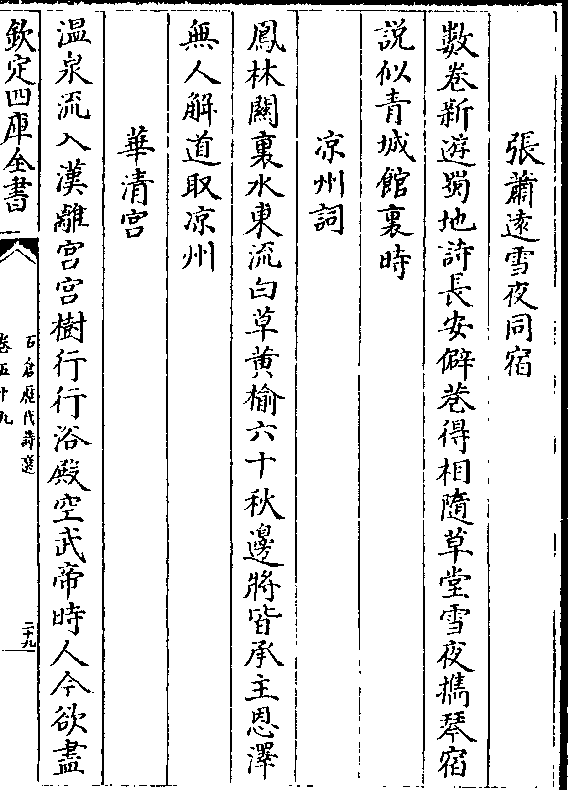 張蕭遠雪夜同宿
數卷新遊蜀地詩長安僻巷得相隨草堂雪夜攜琴宿
説似青城館裏時
凉州詞
鳳林關裏水東流白草黄榆六十秋邊將皆承主恩澤
無人解道取凉州
華清宫
温泉流入漢離宫宫樹行行浴殿空武帝時人今欲盡
欽定四庫全書
石倉歴代詩選
卷五十九
二十九